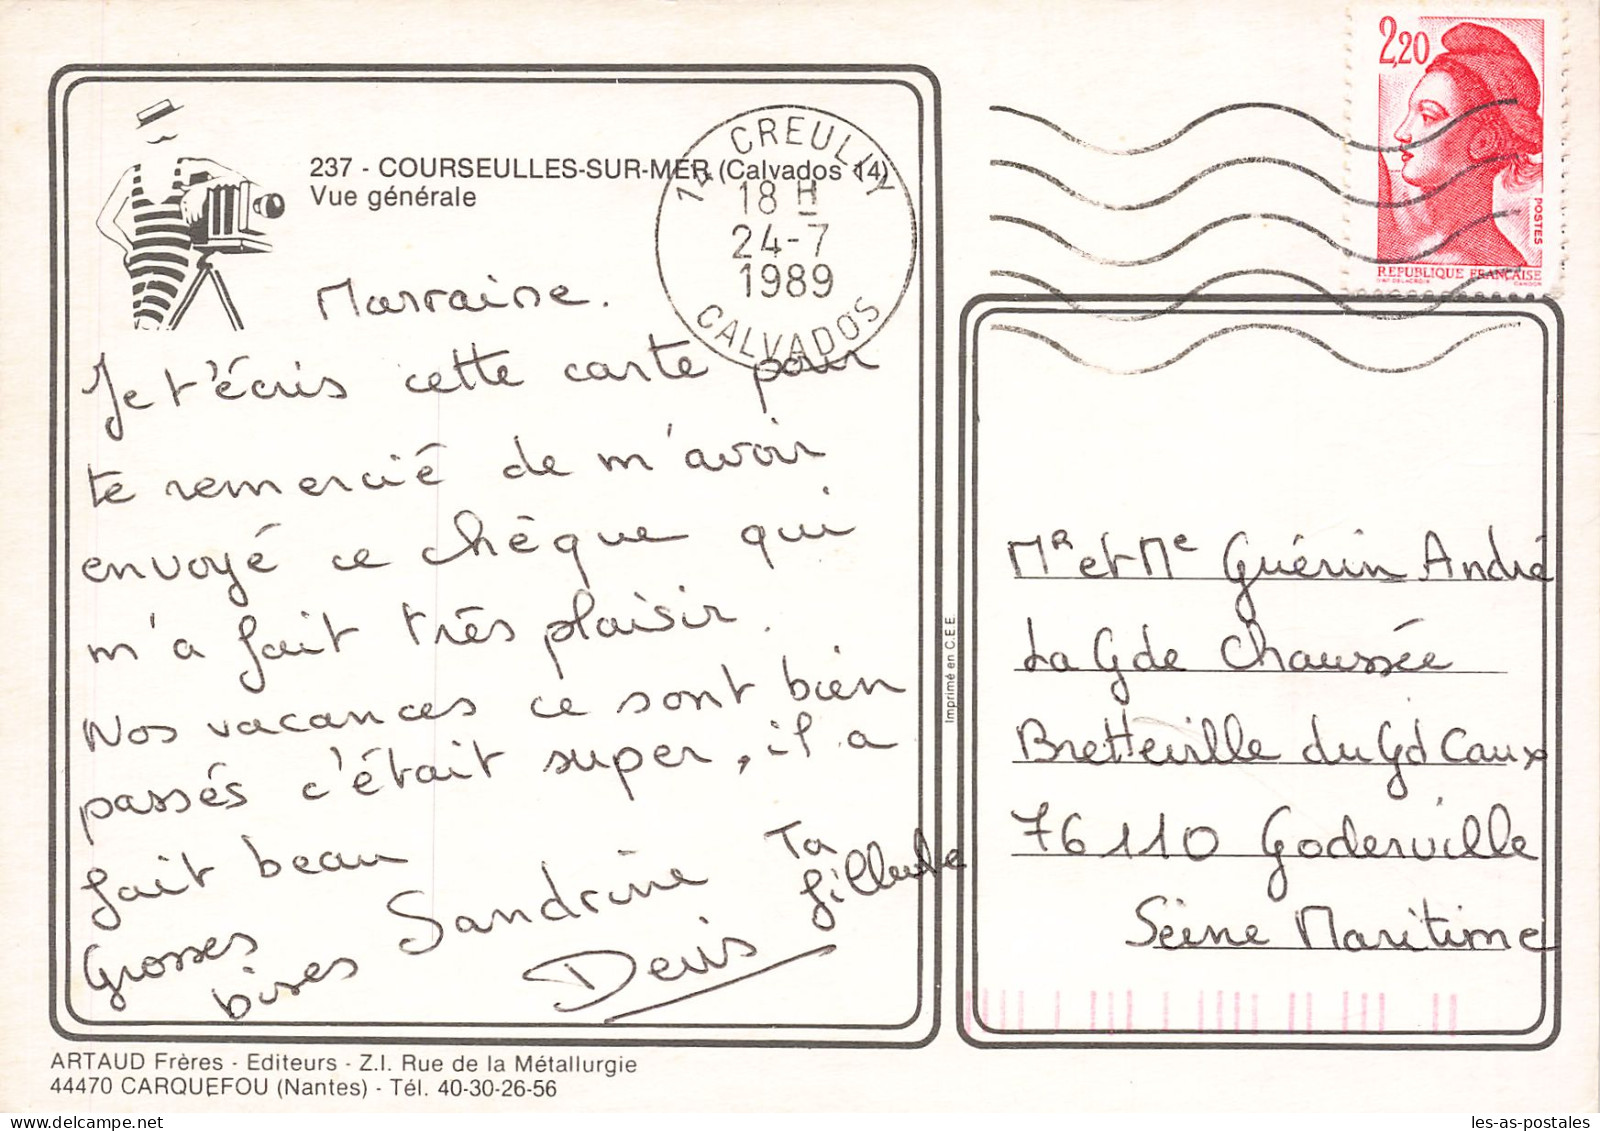 237 - COURSEULLES-SUR-MER (Calvados 14)
Vue générale
14 CREULLY
18 H
24-7
1989
CALVADOS
2,20
POSTES
REPUBLIQUE FRANÇAISE
D'AP. DELACROIX GANDON
Marraine.
Je t'écris cette carte pour
te remercié de m'avoir
envoyé ce chèque qui
m'a fait très plaisir.
Nos vacances ce sont bien
passés c'était super, il a
fait beau
Grosses
bises Sandrine Ta
filleule
Denis
Imprimé en C.E.E.
MR et Me Guérin André
La Gde Chaussée
Bretteville du Gd Caux
76110 Goderville
Seine Maritime
ARTAUD Frères - Editeurs - Z.I. Rue de la Métallurgie
44470 CARQUEFOU (Nantes) - Tél. 40-30-26-56
les-as-postales